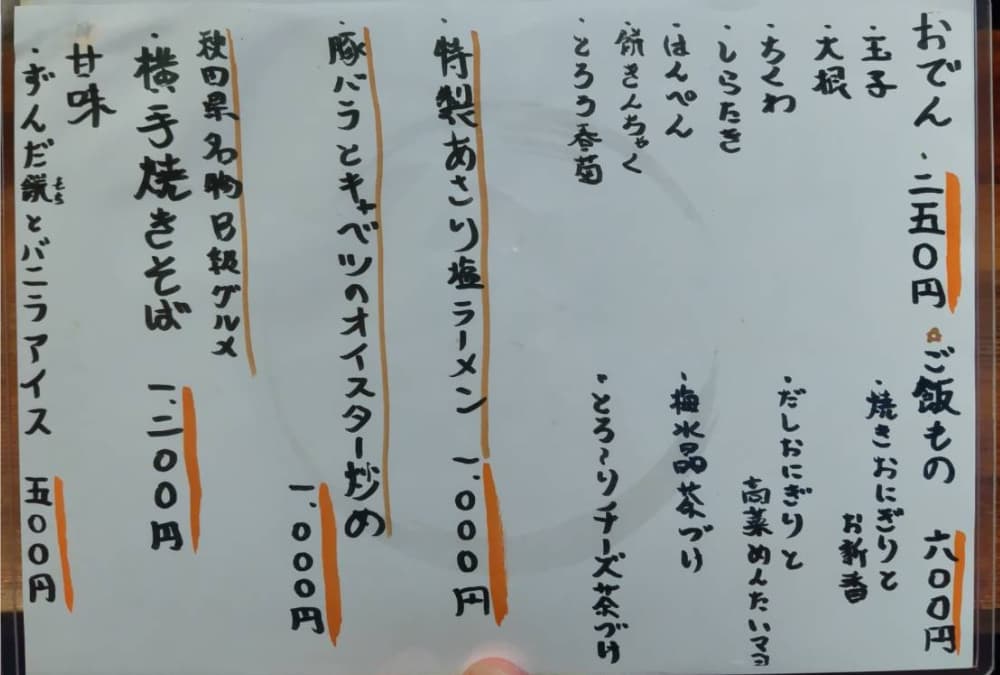 おでん・二五〇円
・玉子
・大根
・ちくわ
・しらたき
・はんぺん
・餅きんちゃく
・とろろ春菊
ご飯もの 六〇〇円
・焼きおにぎりと
お新香
・だしおにぎりと
高菜めんたいマヨ
・梅水晶茶づけ
・とろ〜りチーズ茶づけ
・特製あさり塩ラーメン 一、〇〇〇円
・豚バラとキャベツのオイスター炒め
一、〇〇〇円
秋田県名物B級グルメ
・横手焼きそば 一、二〇〇円
甘味
・ずんだ餅とバニラアイス 五〇〇円
もち